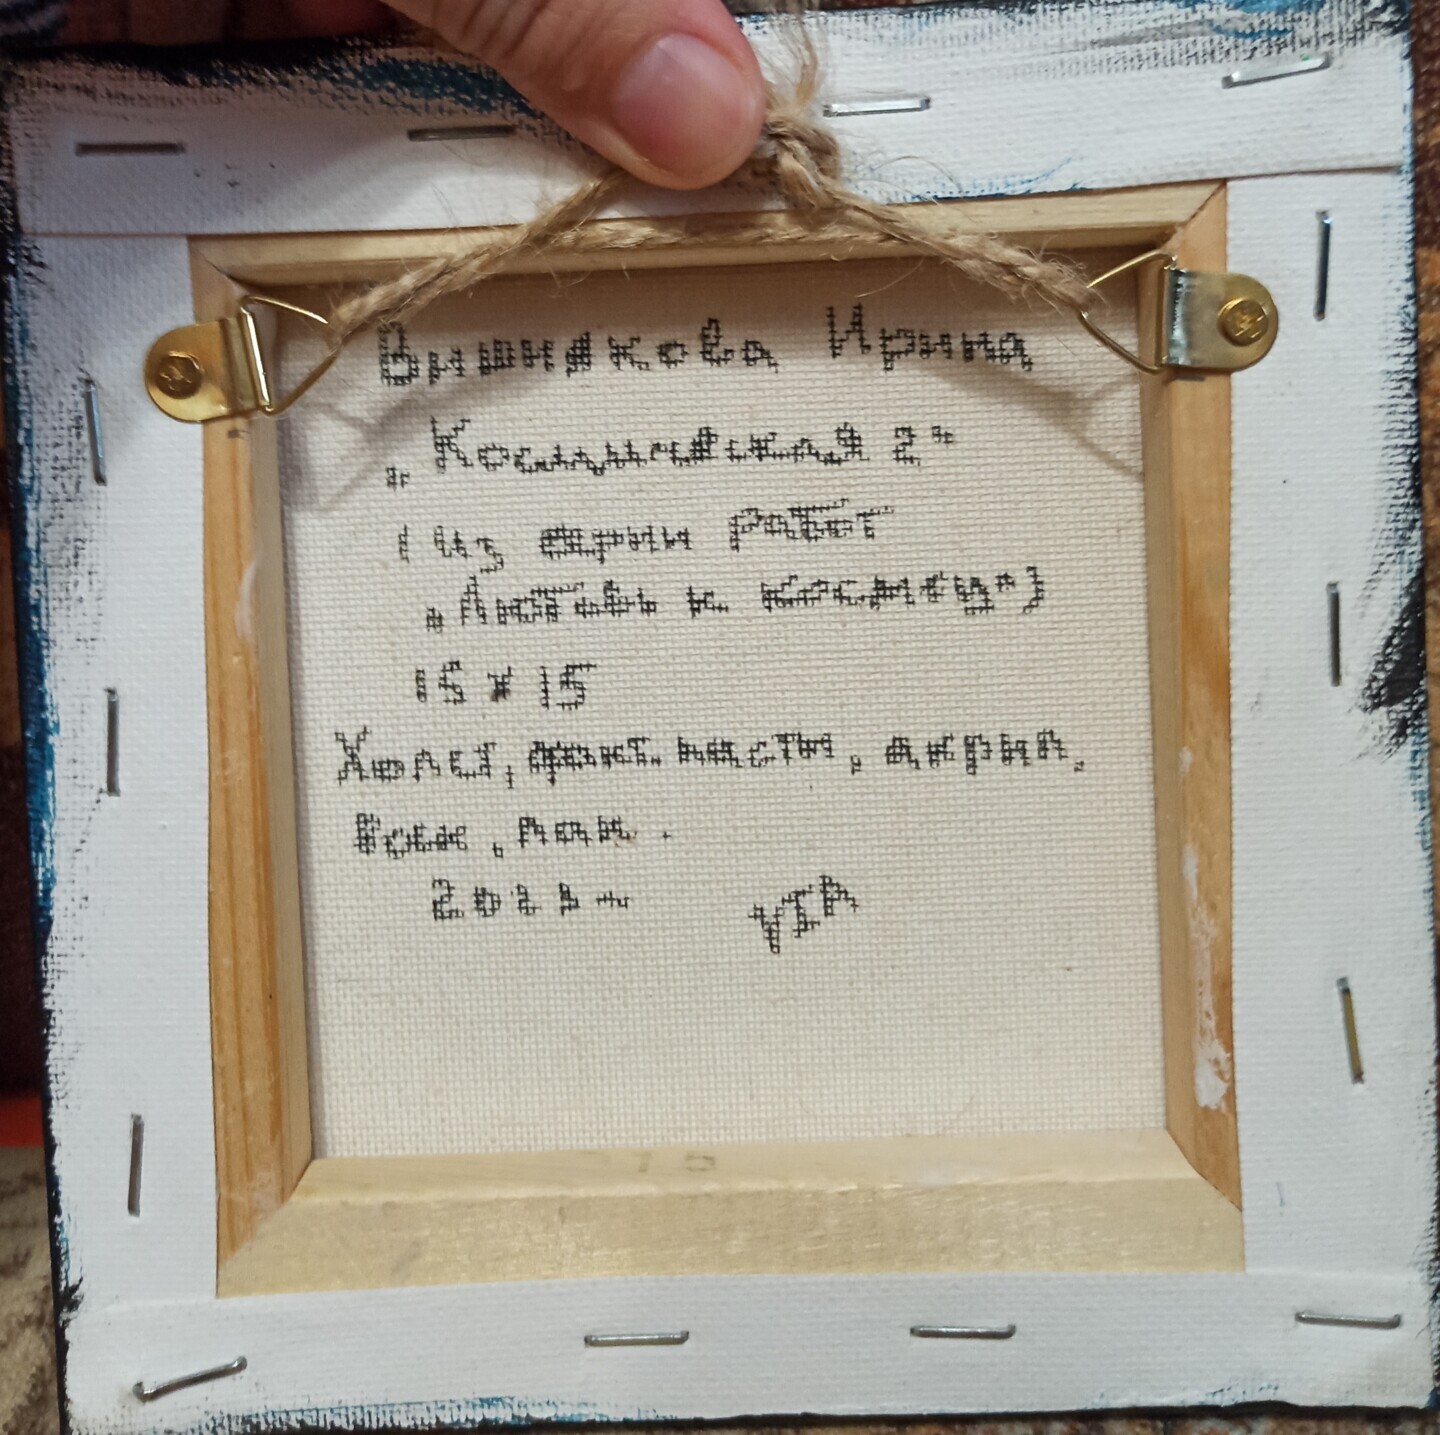 Вишнякова Ирина
„Космическая 2"
(из серии работ
„Любовь к космосу")
15 x 15
Холст, факт. паста, акрил,
лак.
2022 г